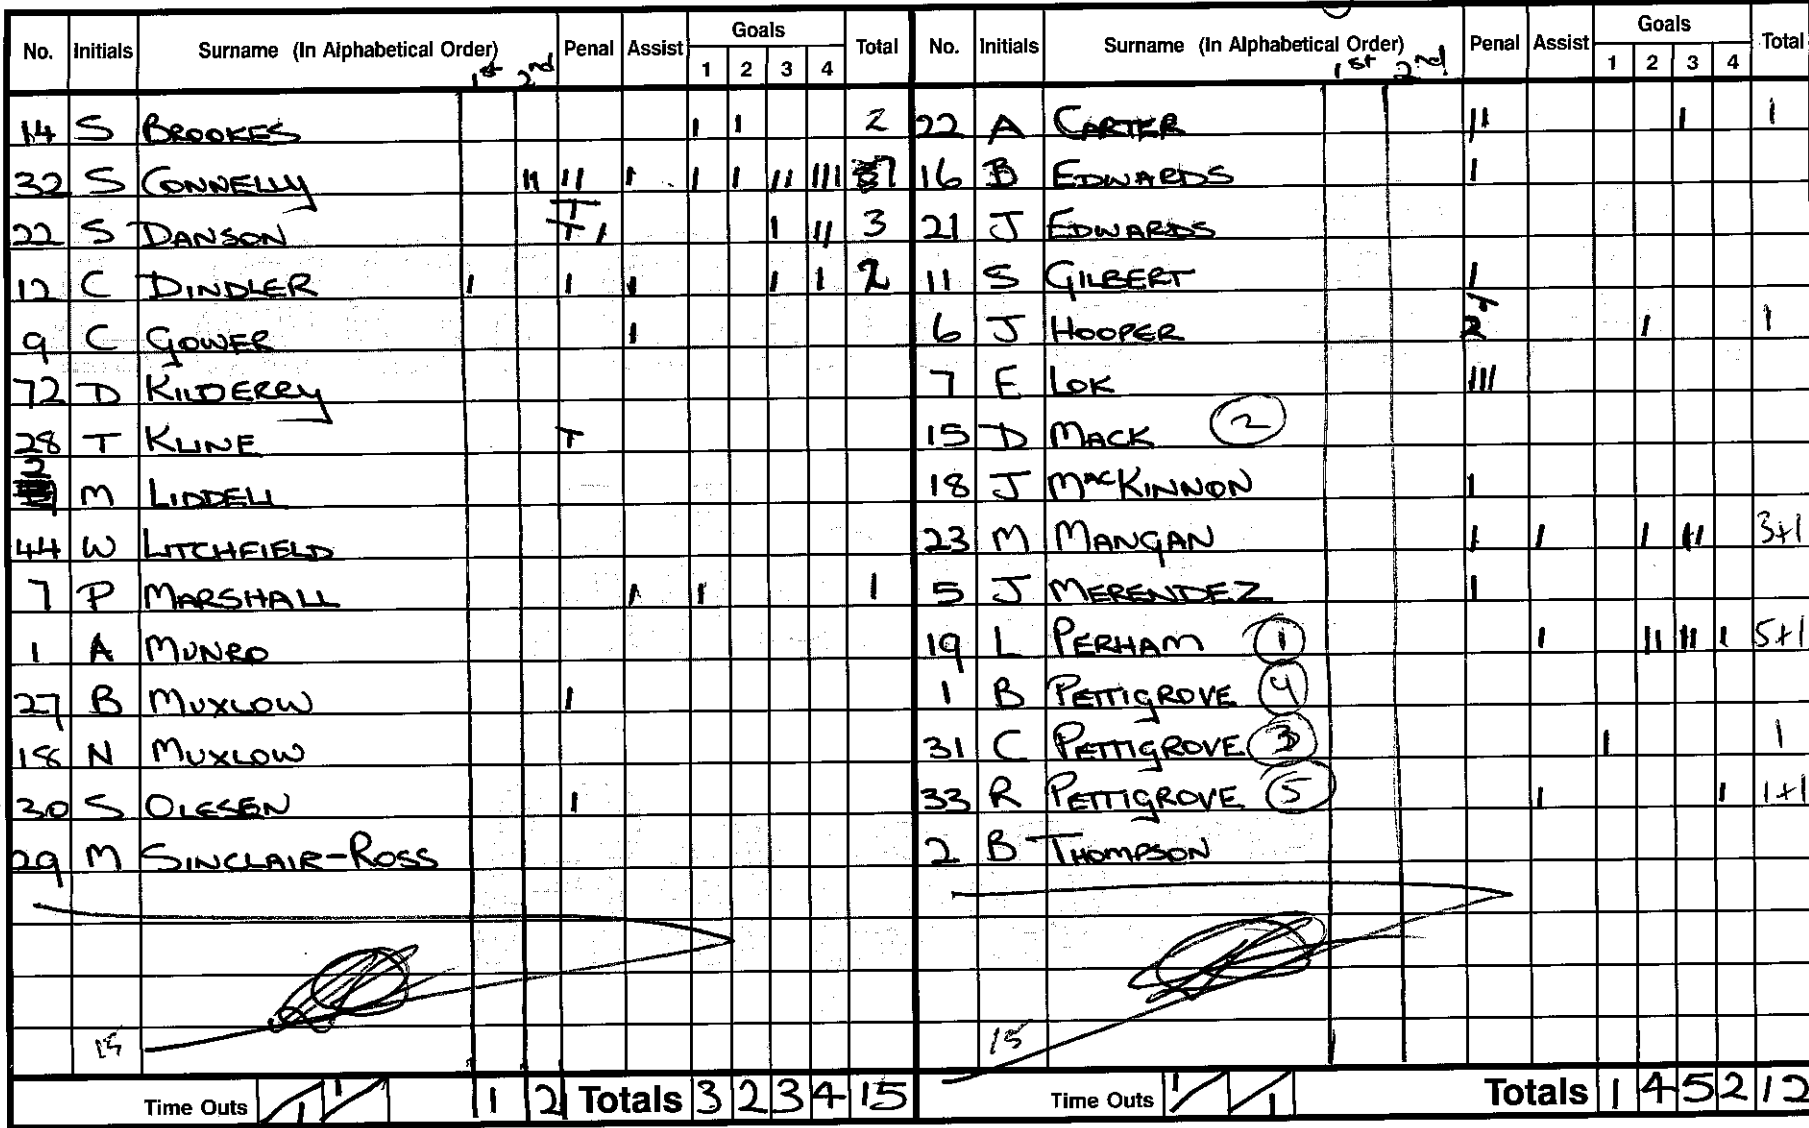 No. Initials Surname (In Alphabetical Order) 1st 2nd Penal Assist Goals 1 2 3 4 Total
14 S BROOKES I I 2
32 S CONNELLY II II I I I II III 7
22 S DANSON T T I I II 3
12 C DINDLER I I I I I 2
9 C GOWER I
72 D KILDERRY
28 T KLINE T
2 M LIDDELL
44 W LITCHFIELD
7 P MARSHALL I I 1
1 A MUNRO
27 B MUXLOW I
18 N MUXLOW
30 S OLESEN I
29 M SINCLAIR-ROSS
15
Time Outs 1 1 1 2 Totals 3 2 3 4 15
No. Initials Surname (In Alphabetical Order) 1st 2nd Penal Assist Goals 1 2 3 4 Total
22 A CARTER II I 1
16 B EDWARDS I
21 J EDWARDS
11 S GILBERT I
6 J HOOPER T 2 I 1
7 E LOK III
15 D MACK 2
18 J MacKINNON I
23 M MANGAN I I I II 3+1
5 J MERENDEZ I
19 L PERHAM 1 I II II I 5+1
1 B PETTIGROVE 4
31 C PETTIGROVE 3 I 1
33 R PETTIGROVE 5 I I 1+1
2 B THOMPSON
15
Time Outs 1 1 Totals 1 4 5 2 12